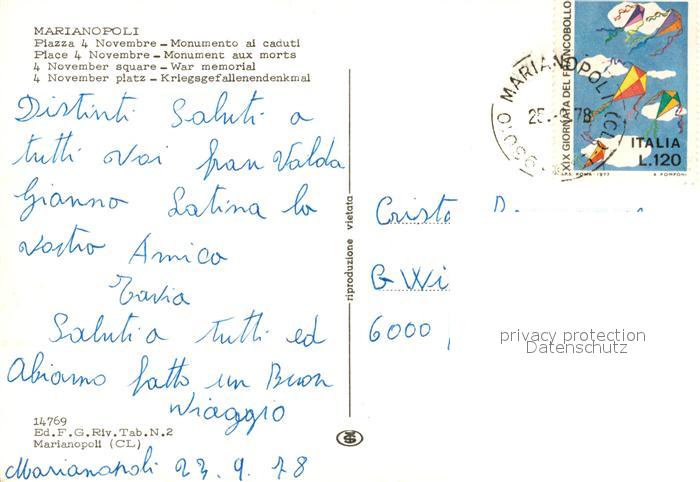 MARIANOPOLI
Piazza 4 Novembre - Monumento ai caduti
Place 4 Novembre - Monument aux morts
4 November square - War memorial
4 November platz - Kriegsgefallenendenkmal
Distinti Saluti a
tutti voi fran Valda
Gianno Satina la
vostra Amica
Tavia
Saluti a tutti ed
Abiamo fatto un Buon
Viaggio
14769
Ed. F. G. Riv. Tab. N. 2
Marianopoli (CL)
Marianopoli 23. 9. 78
riproduzione vietata
XIX GIORNATA DEL FRANCOBOLLO
ITALIA
L.120
I.P.S. ROMA - 1977
A. POMPONI
93010 MARIANOPOLI (CL)
25.-9.78
Crist
G Wi
6000
privacy protection
Datenschutz